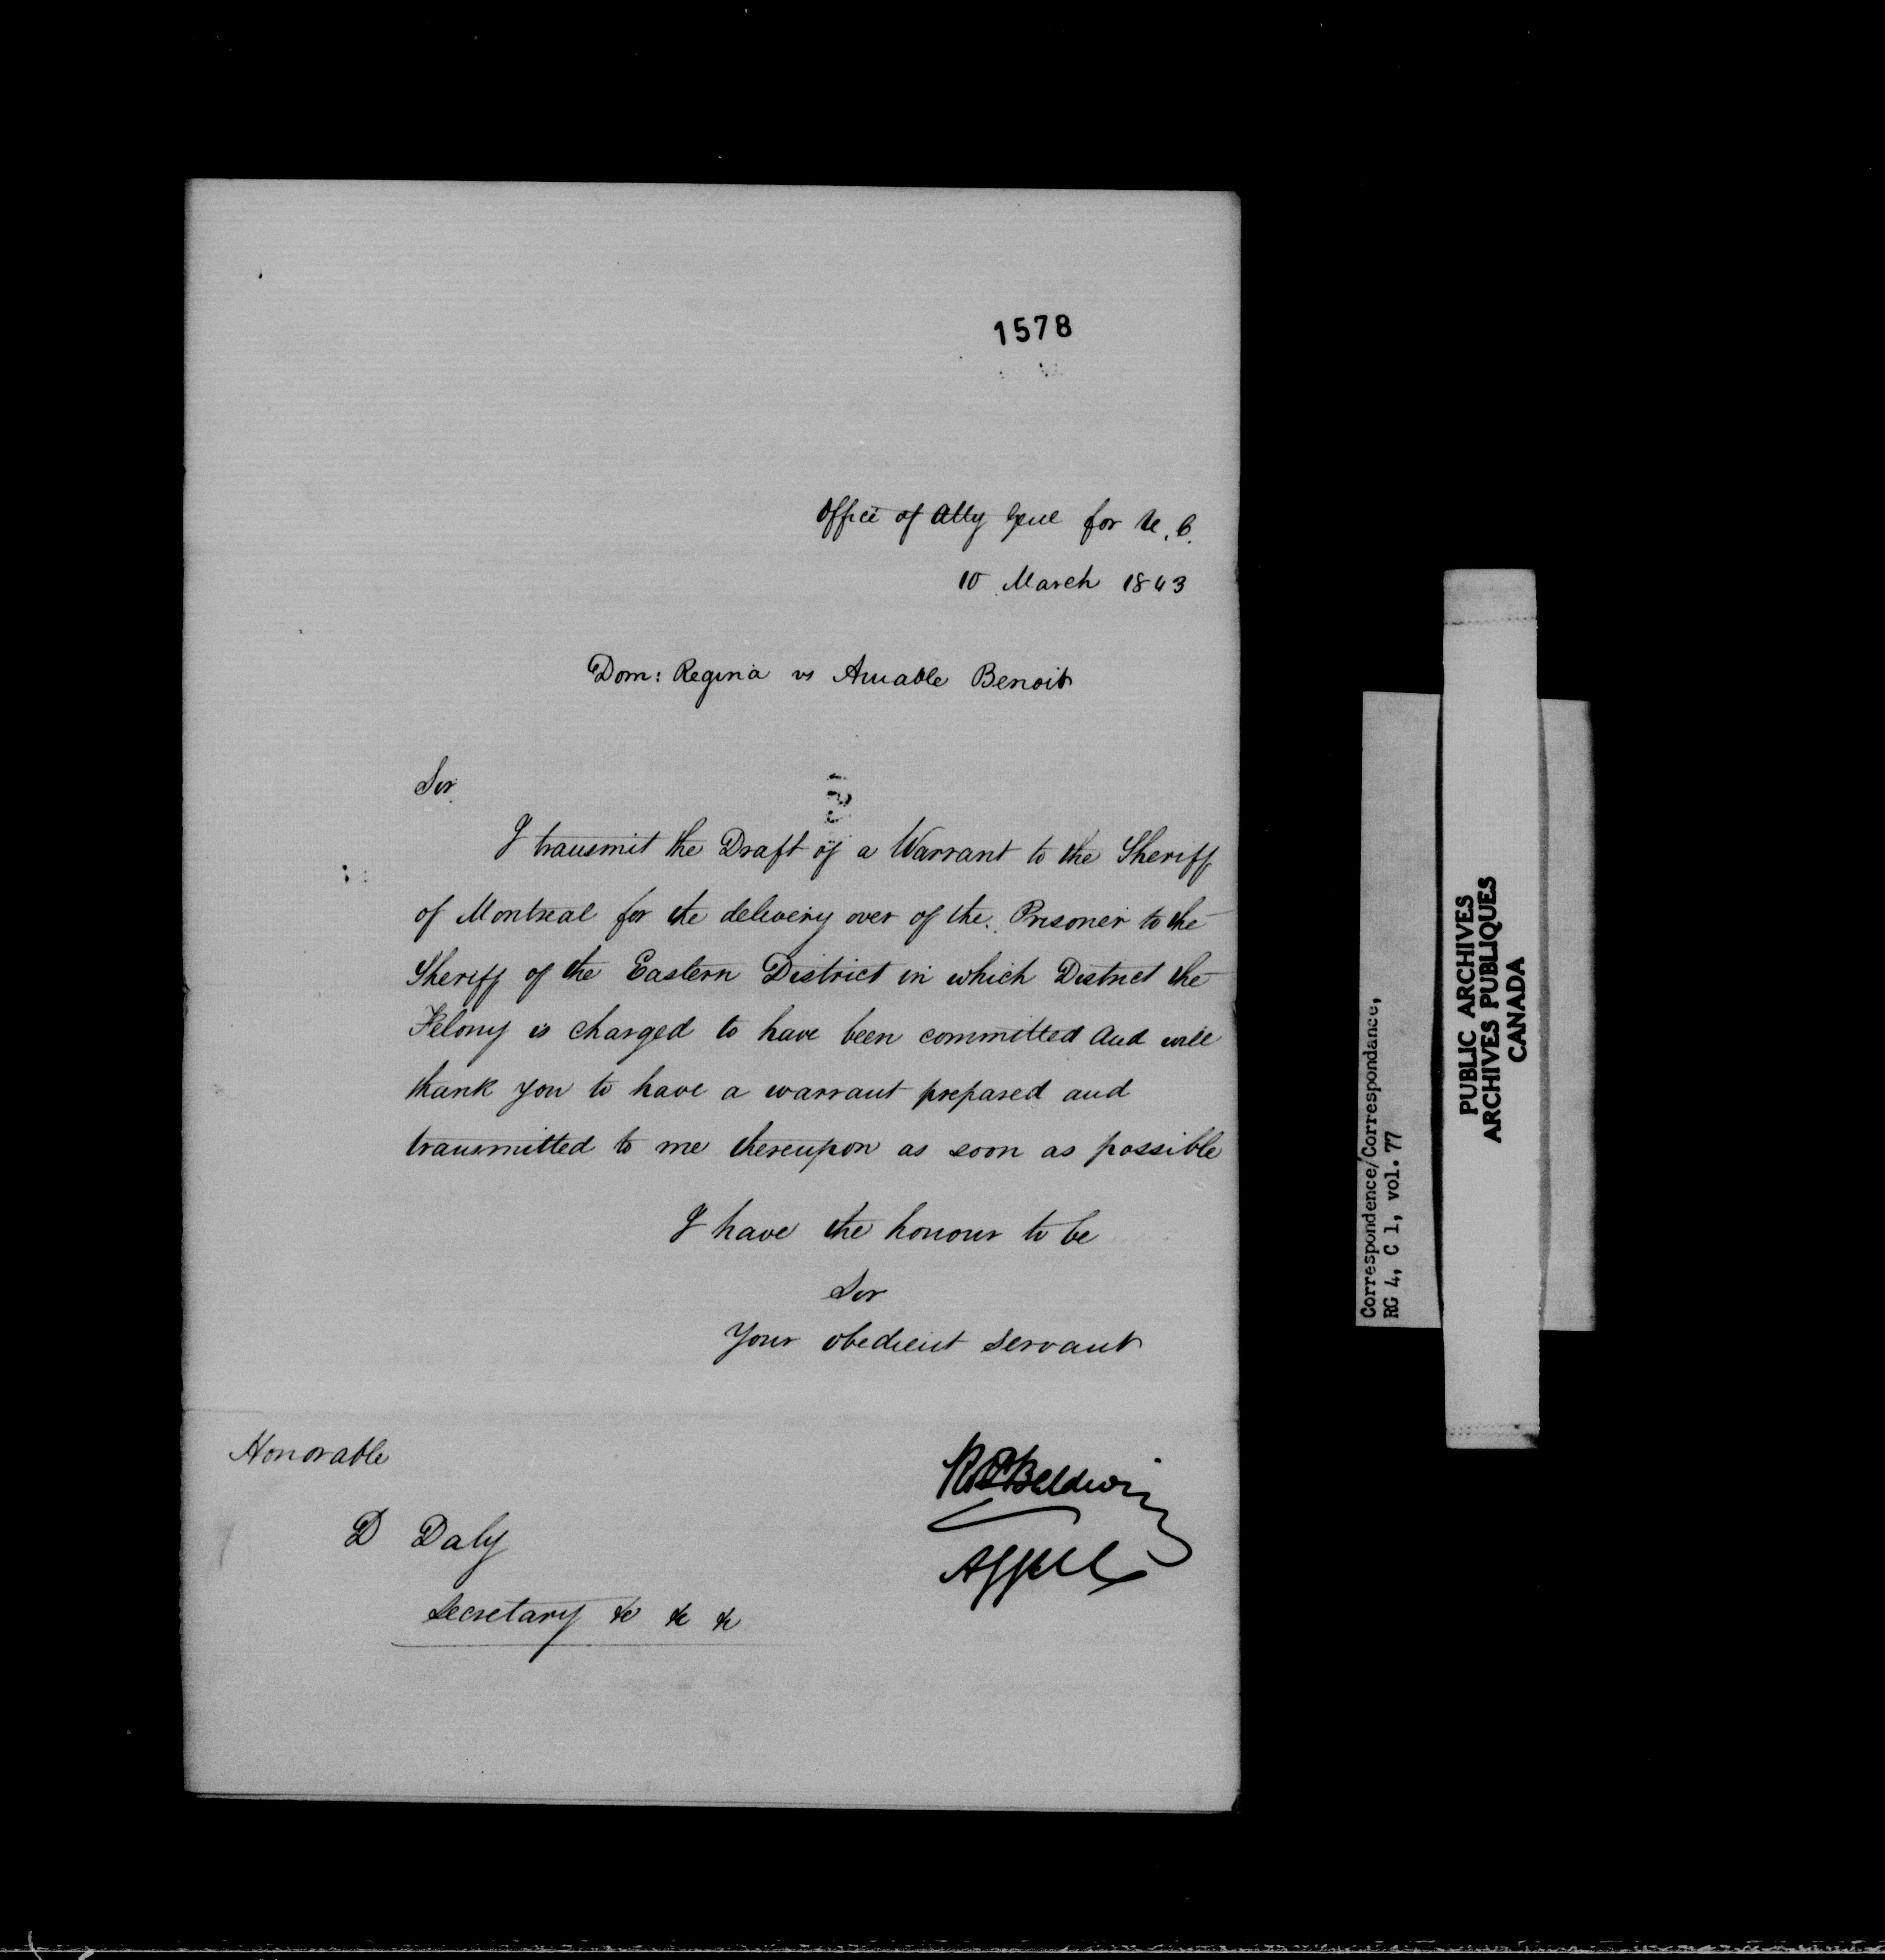 1578
Office of Atty Genl for U. C.
10 March 1843
Dom: Regina vs Amable Benoit
Sir
I transmit the Draft of a Warrant to the Sheriff
of Montreal for the delivery over of the Prisoner to the
Sheriff of the Eastern District in which District the
Felony is charged to have been committed and will
thank you to have a warrant prepared and
transmitted to me thereupon as soon as possible
I have the honour to be
Sir
Your obedient servant
Baldwin
Honorable
D Daly
Secretary &c &c &c
Correspondence/Correspondance,
RG 4, C 1, vol. 77
PUBLIC ARCHIVES
ARCHIVES PUBLIQUES
CANADA